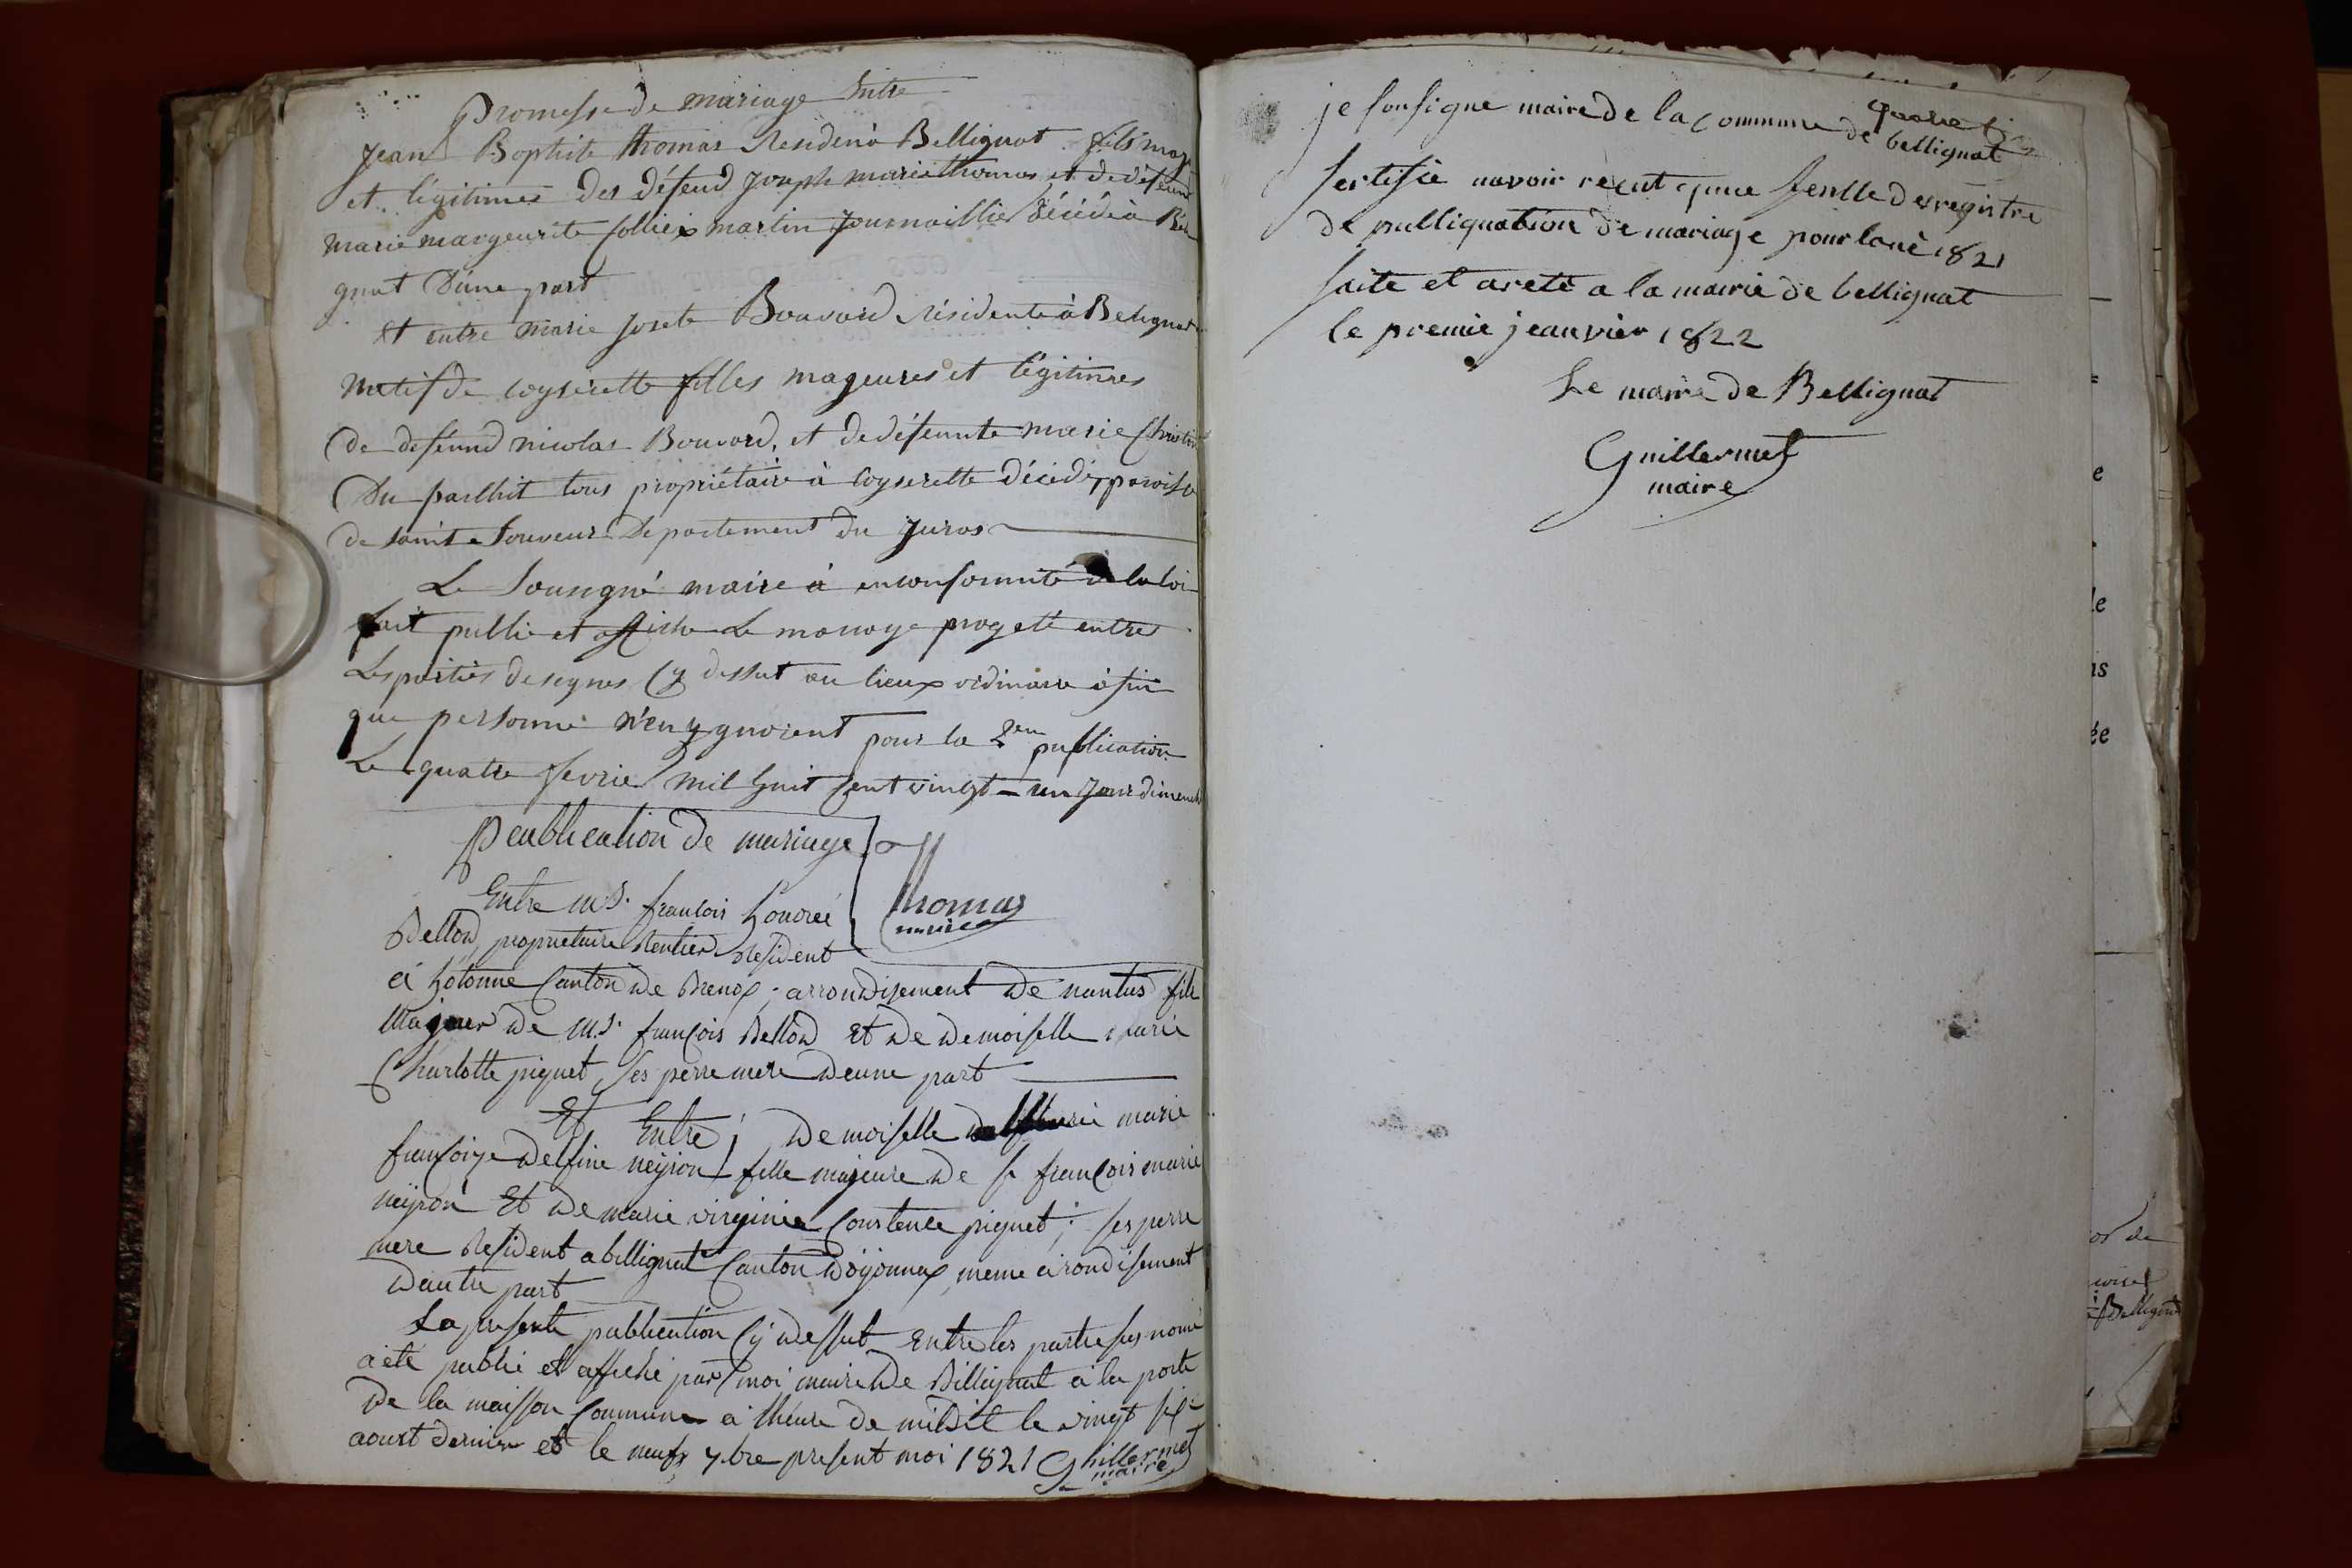 Promesse de mariage Entre
Jean Baptiste thomas Residenà Bellignat fils maj
et légitimes des défeud Joseph marie thomas et de défeunt
marie margeurite Colliex martin Journaillié décédé à Béli
gnat D'une part
Et entre marie Josete Bouvard résidente à Belignat
natif de coyserette filles mageures et légitimes
de defeund nicolas Bouvard, et de défeunte marie Christine
Du parlhit tous propriétaire à coyserette décédé, paroisse
de saint Souveur Département du Juras
Le Sousigné maire à enconformité de la loi
fait publié et affiche Le mariage progeté entre
Les partiés designes Cy dessut au lieux ordinaire àfin
que personne n'en ygnorent pour la 2em publication
Le quatre fevrier mil huit Cent vingt-un Jour dimench
Peublication de mariage
Thomas
maire
Entre m.r francois honoré
Bellod propriétaire Rentier Résident
à hotonne Canton de Brenox; arrondisement de nantua fils
Majeur de m.r françois Bellod Et de demoiselle marie
Charlotte piquet, ses perre mere deune part
Et Entre demoiselle marie
françoise delfine neyron fille majeure de sr françois marie
neyron Et de marie virginie Constence piquet; ses perre
mere Resident a bellignat Canton d'oyonnax, meme arondisement
dautre part
La presente publication Cy dessut Entre les partie sus nomé
a été publié et affiché par moi maire de Bellignat à la porte
de la maisson Commune a lheure de midit le vingt six
aoust dernier et le neuf 7bre present moi 1821 Ghillermet
maire
je sousigne maire de la commune de bellignat
sertifié navoir recut qune feulle de registre
de pulliquation de mariage pour lané 1821
faite et areté a la mairie de bellignat
le premié jeanvier 1822
Le maire de Bellignat
Guillermet
maire